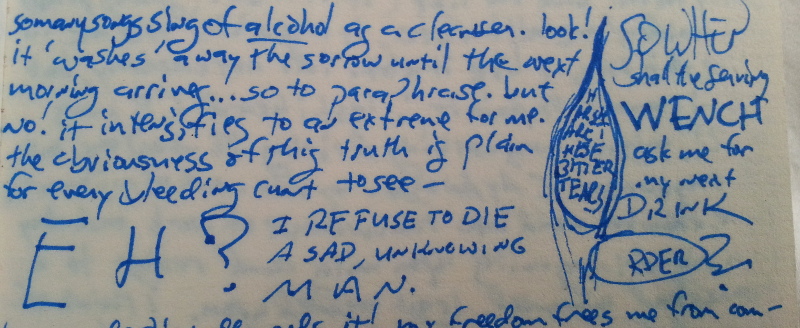 somany songs sing of alcohol as a cleanser. look!
it 'washes' away the sorrow until the next
morning arrives... so to paraphrase. but
no! it intensifies to an extreme for me.
the obviousness of this truth is plain
for every bleeding cunt to see—
EH?
I REFUSE TO DIE
A SAD, UNKNOWING
MAN.
BITTER
TEARS
SO WHEN
shall the serving
WENCH
ask me for
my next
DRINK
RDER?
it! my freedom frees me from com-